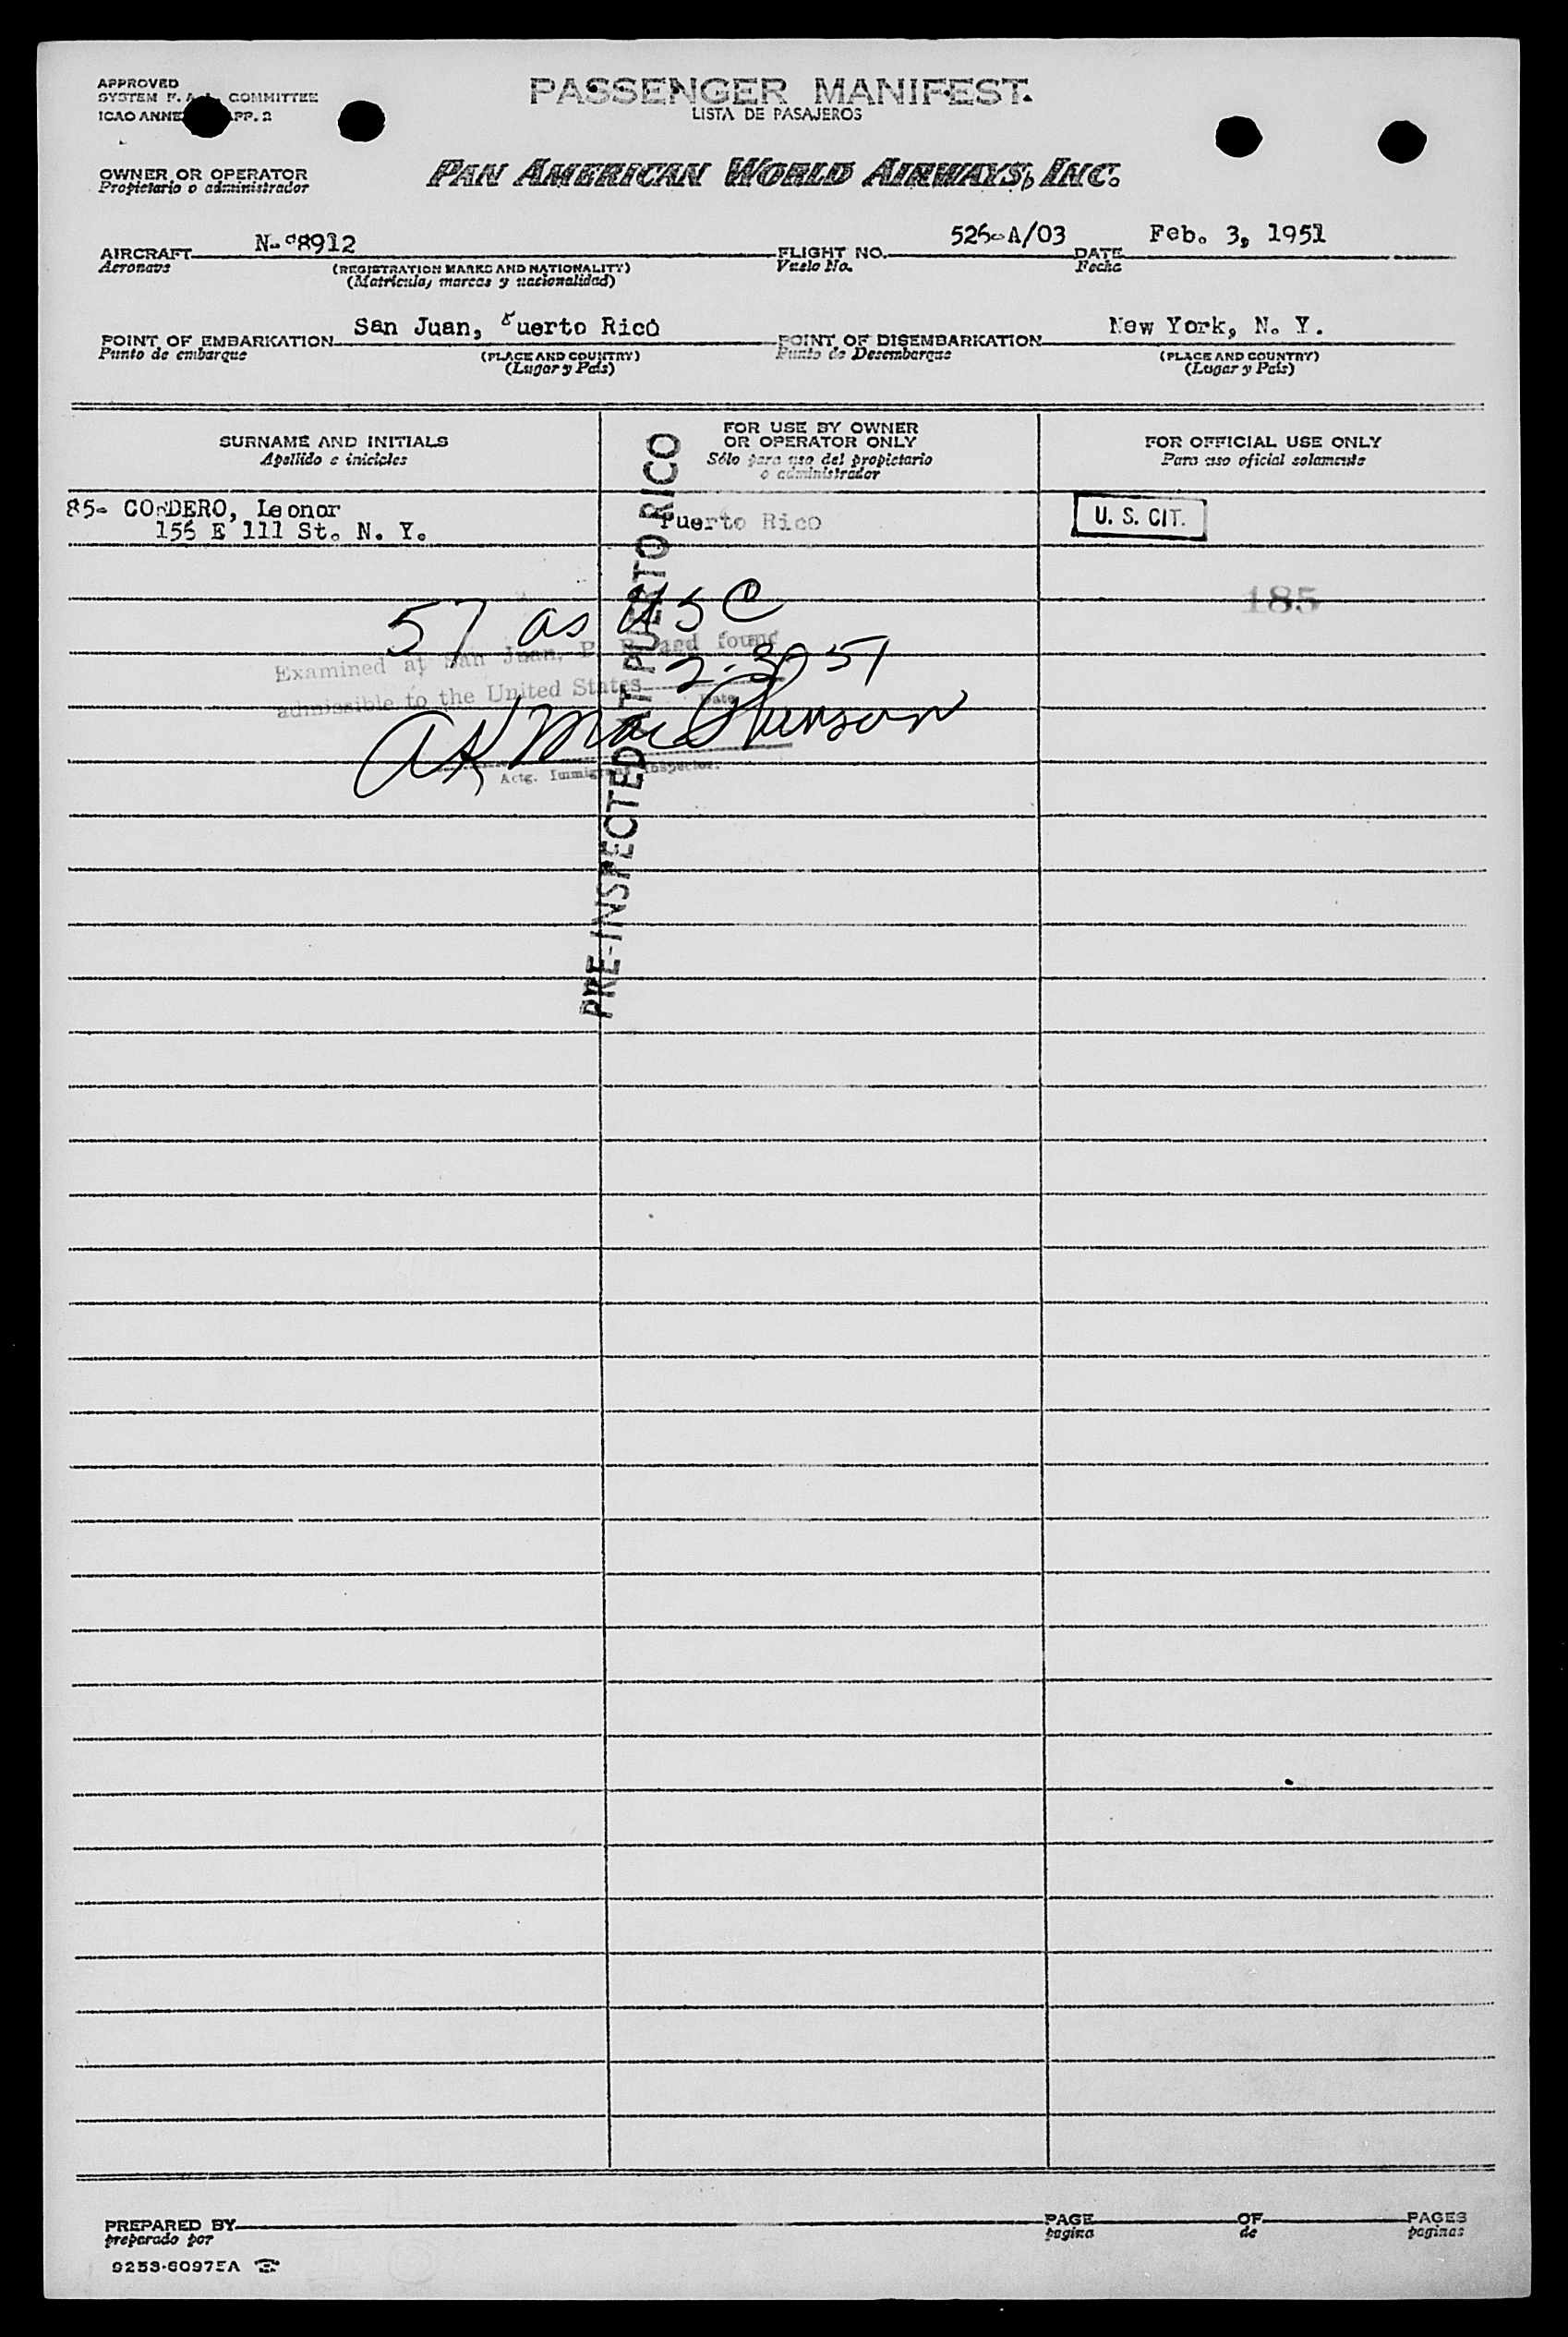 APPROVED
SYSTEM F. A. L. COMMITTEE
ICAO ANNE APP. 2
PASSENGER MANIFEST.
LISTA DE PASAJEROS
OWNER OR OPERATOR
Propietario o administrador
PAN AMERICAN WORLD AIRWAYS, INC.
AIRCRAFT N-88912 FLIGHT NO. 526-A/03 DATE Feb. 3, 1951
Aeronave (REGISTRATION MARKS AND NATIONALITY) Vuelo No. Fecha
(Matricula, marcas y nacionalidad)
POINT OF EMBARKATION San Juan, Puerto Rico POINT OF DISEMBARKATION New York, N. Y.
Punto de embarque (PLACE AND COUNTRY) Punto de Desembarque (PLACE AND COUNTRY)
(Lugar y País) (Lugar y País)
SURNAME AND INITIALS
Apellido e iniciales
FOR USE BY OWNER
OR OPERATOR ONLY
Sólo para uso del propietario
o administrador
FOR OFFICIAL USE ONLY
Para uso oficial solamente
85- CORDERO, Leonor
155 E 111 St. N. Y.
Puerto Rico
U. S. CIT.
185
PRE-INSPECTED AT PUERTO RICO
57 as USC
Examined at San Juan, P. R. and found
2-3-51
admissible to the United States
Date
Actg. Immigrant Inspector.
PREPARED BY PAGE OF PAGES
preparado por pagina de paginas
9253-6097EA